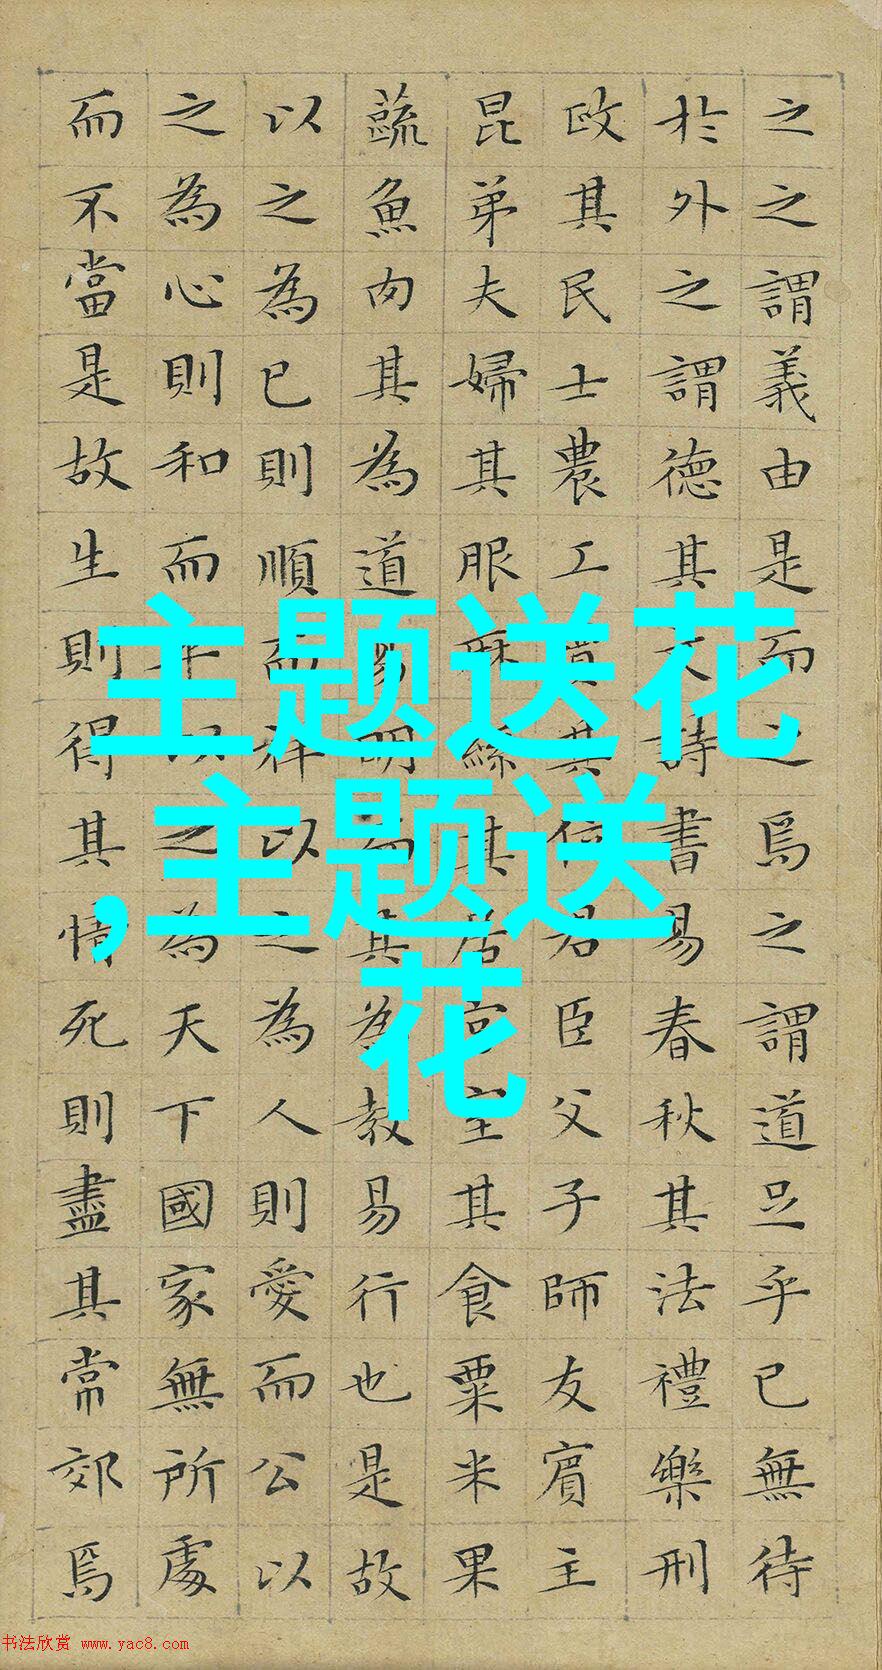 之之謂義由是而之焉之謂道足乎已無待
於外之謂德其文詩書易春秋其法禮樂刑
政其民士農工賈其位君臣父子師友賓主
昆弟夫婦其服麻絲其居宮室其食粟米果
蔬魚肉其為道易明而其為教易行也是故
以之為己則順而祥以之為人則愛而公以
之為心則和而平以之為天下國家無所處
而不當是故生則得其情死則盡其常郊焉
主题送花
,主题送
花
书法欣赏 www.yac8.com